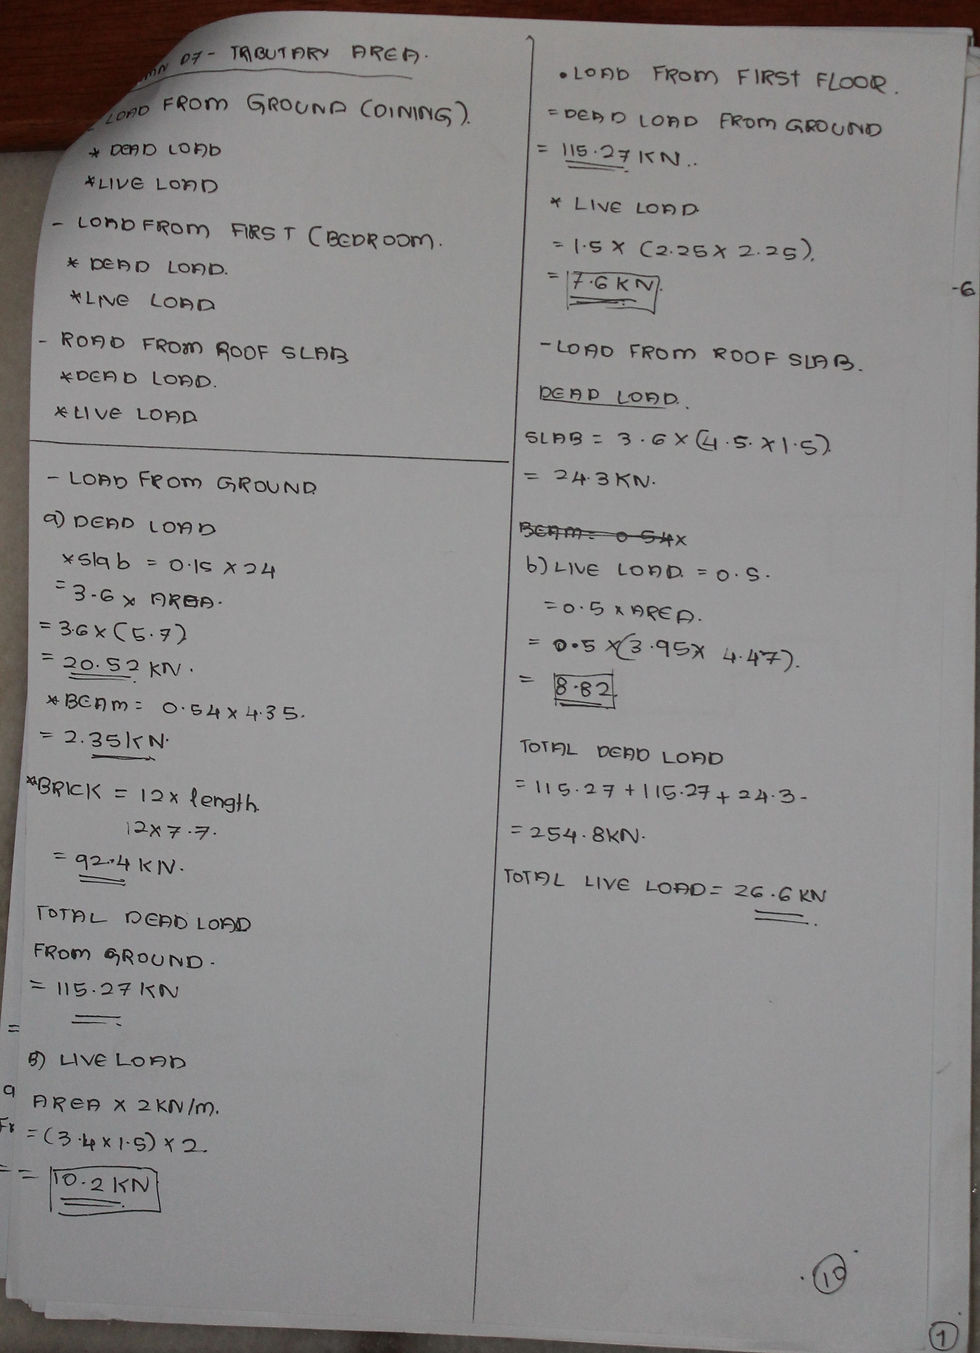 D7 - TRIBUTARY AREA.
- LOAD FROM GROUND (DINING).
* DEAD LOAD
* LIVE LOAD
- LOAD FROM FIRST (BEDROOM.
* DEAD LOAD.
* LIVE LOAD
- ROAD FROM ROOF SLAB
* DEAD LOAD.
* LIVE LOAD
- LOAD FROM GROUND
a) DEAD LOAD
* Slab = 0.15 x 24
= 3.6 x AREA.
= 3.6 x (5.7)
= 20.52 KN.
* BEAM = 0.54 x 4.35.
= 2.35 KN.
* BRICK = 12 x length
12 x 7.7.
= 92.4 KN.
TOTAL DEAD LOAD
FROM GROUND.
= 115.27 KN
=
B) LIVE LOAD
a
AREA x 2 KN/m.
= (3.4 x 1.5) x 2.
= = 10.2 KN
• LOAD FROM FIRST FLOOR.
= DEAD LOAD FROM GROUND
= 115.27 KN..
* LIVE LOAD
= 1.5 x (2.25 x 2.25).
= 7.6 KN.
-6
- LOAD FROM ROOF SLAB.
DEAD LOAD.
SLAB = 3.6 x (4.5. x 1.5)
= 24.3 KN.
BEAM = 0.54x
b) LIVE LOAD = 0.5.
= 0.5 x AREA.
= 0.5 x (3.95 x 4.47).
= 8.82.
TOTAL DEAD LOAD
= 115.27 + 115.27 + 24.3 -
= 254.8 KN.
TOTAL LIVE LOAD = 26.6 KN
10
1